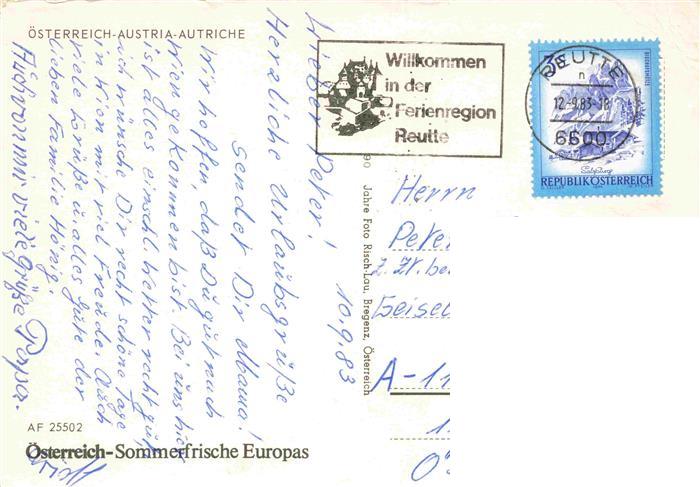 ÖSTERREICH-AUSTRIA-AUTRICHE
Willkommen
in der
Ferienregion
Reutte
REUTTE
n
12.-9.83-18
6600
REPUBLIK ÖSTERREICH
10.9.83
Lieber Peter!
Herzliche Urlaubsgrüße
sendet Dir Mama!
Wir hoffen, daß Du gut nach
Wien gekommen bist. Bei uns hier
ist alles einschl. Wetter recht gut,
ich wünsche Dir recht schöne Tage
in Wien mit viel Freude. Auch
viele Grüße u. alles Gute der
lieben Familie Hönig.
Auch von mir viele Grüße Papa.
90 Jahre Foto Risch-Lau, Bregenz, Österreich
Herrn
Pete
z. Zt. be
Geise
A-11
1.
AF 25502
Österreich-Sommerfrische Europas